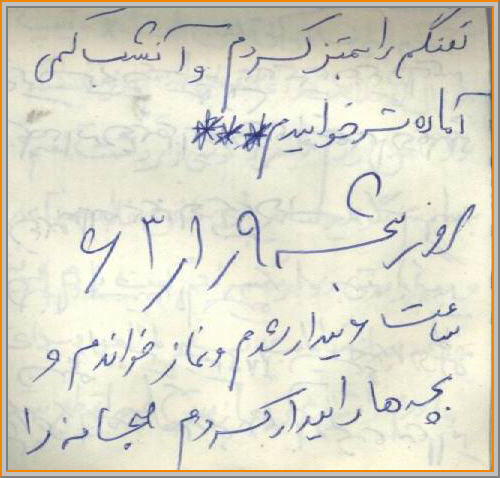 تفنگم را تمیز کردم و آنشب کمی
آماده تر خوابیدم ***
روز پنجشنبه ۶۳/۱/۹
ساعت ۶ بیدار شدم و نماز خواندم و
بچه ها را بیدار کردم صبحانه را